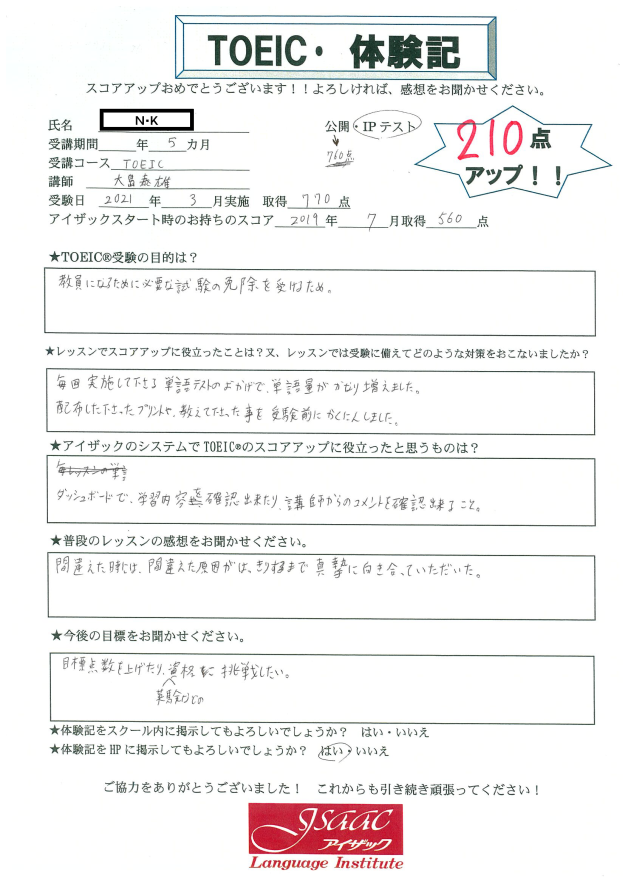 TOEIC・体験記
スコアアップおめでとうございます！！よろしければ、感想をお聞かせください。
氏名 N・K
公開・IPテスト
760点
210点
アップ！！
受講期間 年 5 カ月
受講コース TOEIC
講師 大畠泰雄
受験日 2021 年 3 月実施 取得 770 点
アイザックスタート時のお持ちのスコア 2019 年 7 月取得 560 点
★TOEIC®受験の目的は？
教員になるために必要な試験の免除を受けるため。
★レッスンでスコアアップに役立ったことは？又、レッスンでは受験に備えてどのような対策をおこないましたか？
毎回実施して下さる単語テストのおかげで、単語量がかなり増えました。
配布した下さったプリントや、教えて下さった事を受験前にかくにんしました。
★アイザックのシステムでTOEIC®のスコアアップに役立ったと思うものは？
毎レッスンの単語
ダッシュボードで、学習内容確認出来たり、講師からのコメントを確認出来ること。
★普段のレッスンの感想をお聞かせください。
間違えた時には、間違えた原因がはっきりするまで真摯に向き合っていただいた。
★今後の目標をお聞かせください。
目標点数を上げたり、資格に挑戦したい。
英検などの
★体験記をスクール内に掲示してもよろしいでしょうか？ はい・いいえ
★体験記をHPに掲示してもよろしいでしょうか？ はい・いいえ
ご協力をありがとうございました！ これからも引き続き頑張ってください！
ISAAC
アイザック
Language Institute